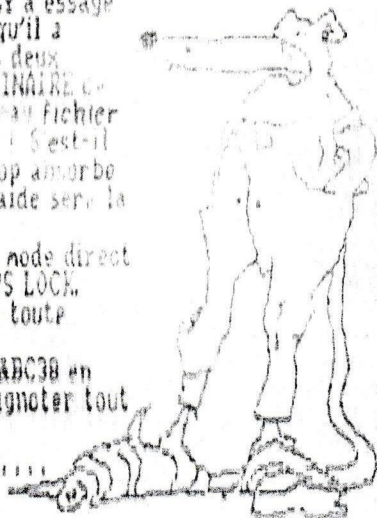 essage
qu'il a
deux
INAIRE
fichier
S'est-il
op absorbé
aide sera la
mode direct
PS LOCK.
toute
ABC38 en
ignoter tout